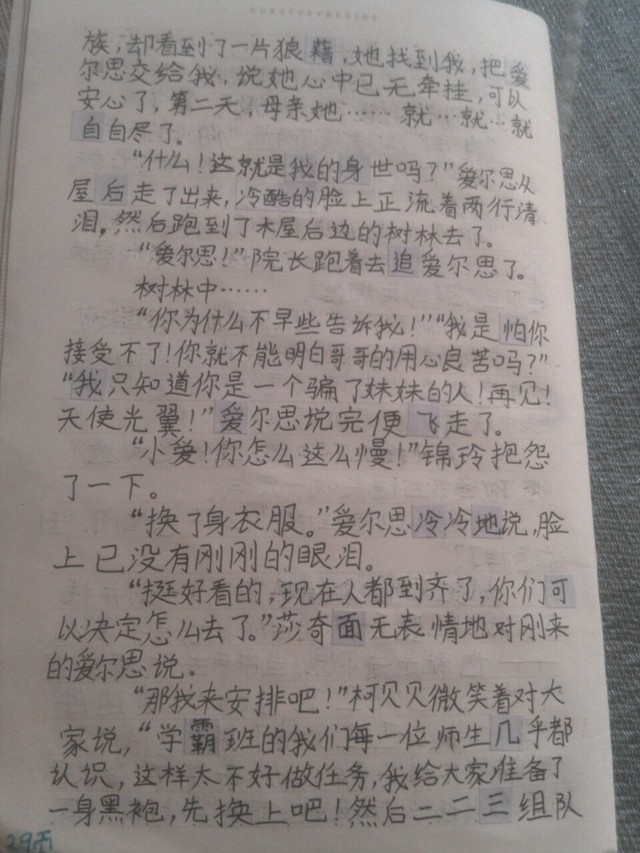 族，却看到了一片狼藉，她找到我，把爱
尔思交给我，说她心中已无牵挂，可以
安心了，第二天，母亲她……就…就…就
自自尽了。
“什么！这就是我的身世吗？”爱尔思从
屋后走了出来，冷酷的脸上正流着两行清
泪，然后跑到了木屋后边的树林去了。
“爱尔思！”院长跑着去追爱尔思了。
树林中……
“你为什么不早些告诉我！”“我是怕你
接受不了！你就不能明白哥哥的用心良苦吗？”
“我只知道你是一个骗了妹妹的人！再见！
天使光翼！”爱尔思说完便飞走了。
“小爱！你怎么这么慢！”锦玲抱怨
了一下。
“换了身衣服。”爱尔思冷冷地说，脸
上已没有刚刚的眼泪。
“挺好看的，现在人都到齐了，你们可
以决定怎么去了。”莎奇面无表情地对刚来
的爱尔思说。
“那我来安排吧！”柯贝贝微笑着对大
家说，“学霸班的我们每一位师生几乎都
认识，这样太不好做任务，我给大家准备了
一身黑袍，先换上吧！然后二二三组队
29页